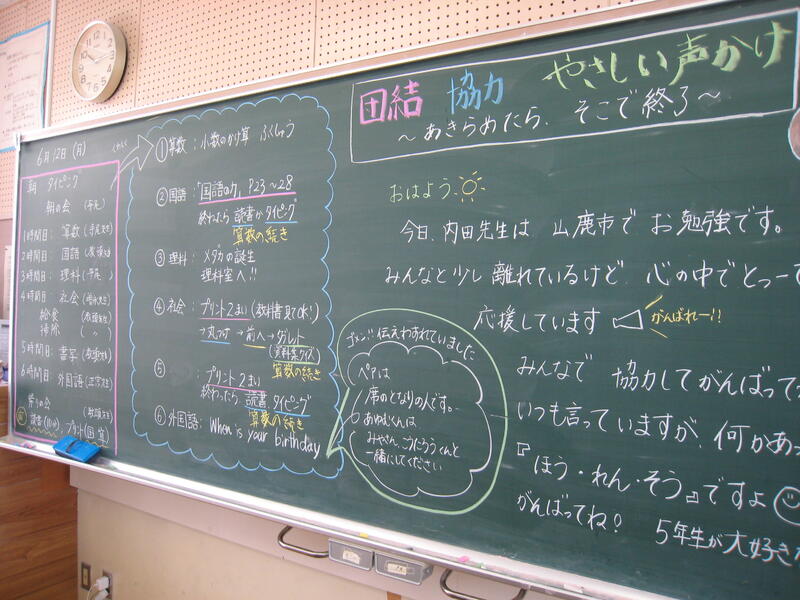 6月12日(月)
朝 タイピング
朝の会
1時間目: 算数
2時間目: 国語
3時間目: 理科
4時間目: 社会
給食
掃除
5時間目: 書写
6時間目: 外国語
帰りの会
①算数: 小数のかけ算 ふくしゅう
②国語:「国語の力」P23〜28
終わったら 読書か タイピング
算数の続き
③理科: メダカの誕生
理科室へ!!
④社会: プリント2まい(教科書見てOK!)
→丸つけ→前へ→タブレット
(資料集クイズ)
算数の続き
⑤
プリント2まい
終わったら 読書 タイピング
算数の続き
⑥外国語: When is your birthday
ゴメン!!伝えわすれていました
ペアは
席のとなりの人です。
みやさん、こたろうくんと
一緒にしてください
団結 協力 やさしい声かけ
〜あきらめたら、そこで終了〜
おはよう
今日、内田先生は 山鹿市で お勉強です。
みんなと少し離れているけど、心の中でとって
応援しています がんばれー!!
みんなで 協力してがんばって
いつも言っていますが、何かあっ
『ほう・れん・そう』ですよ
がんばってね! 5年生が大好き